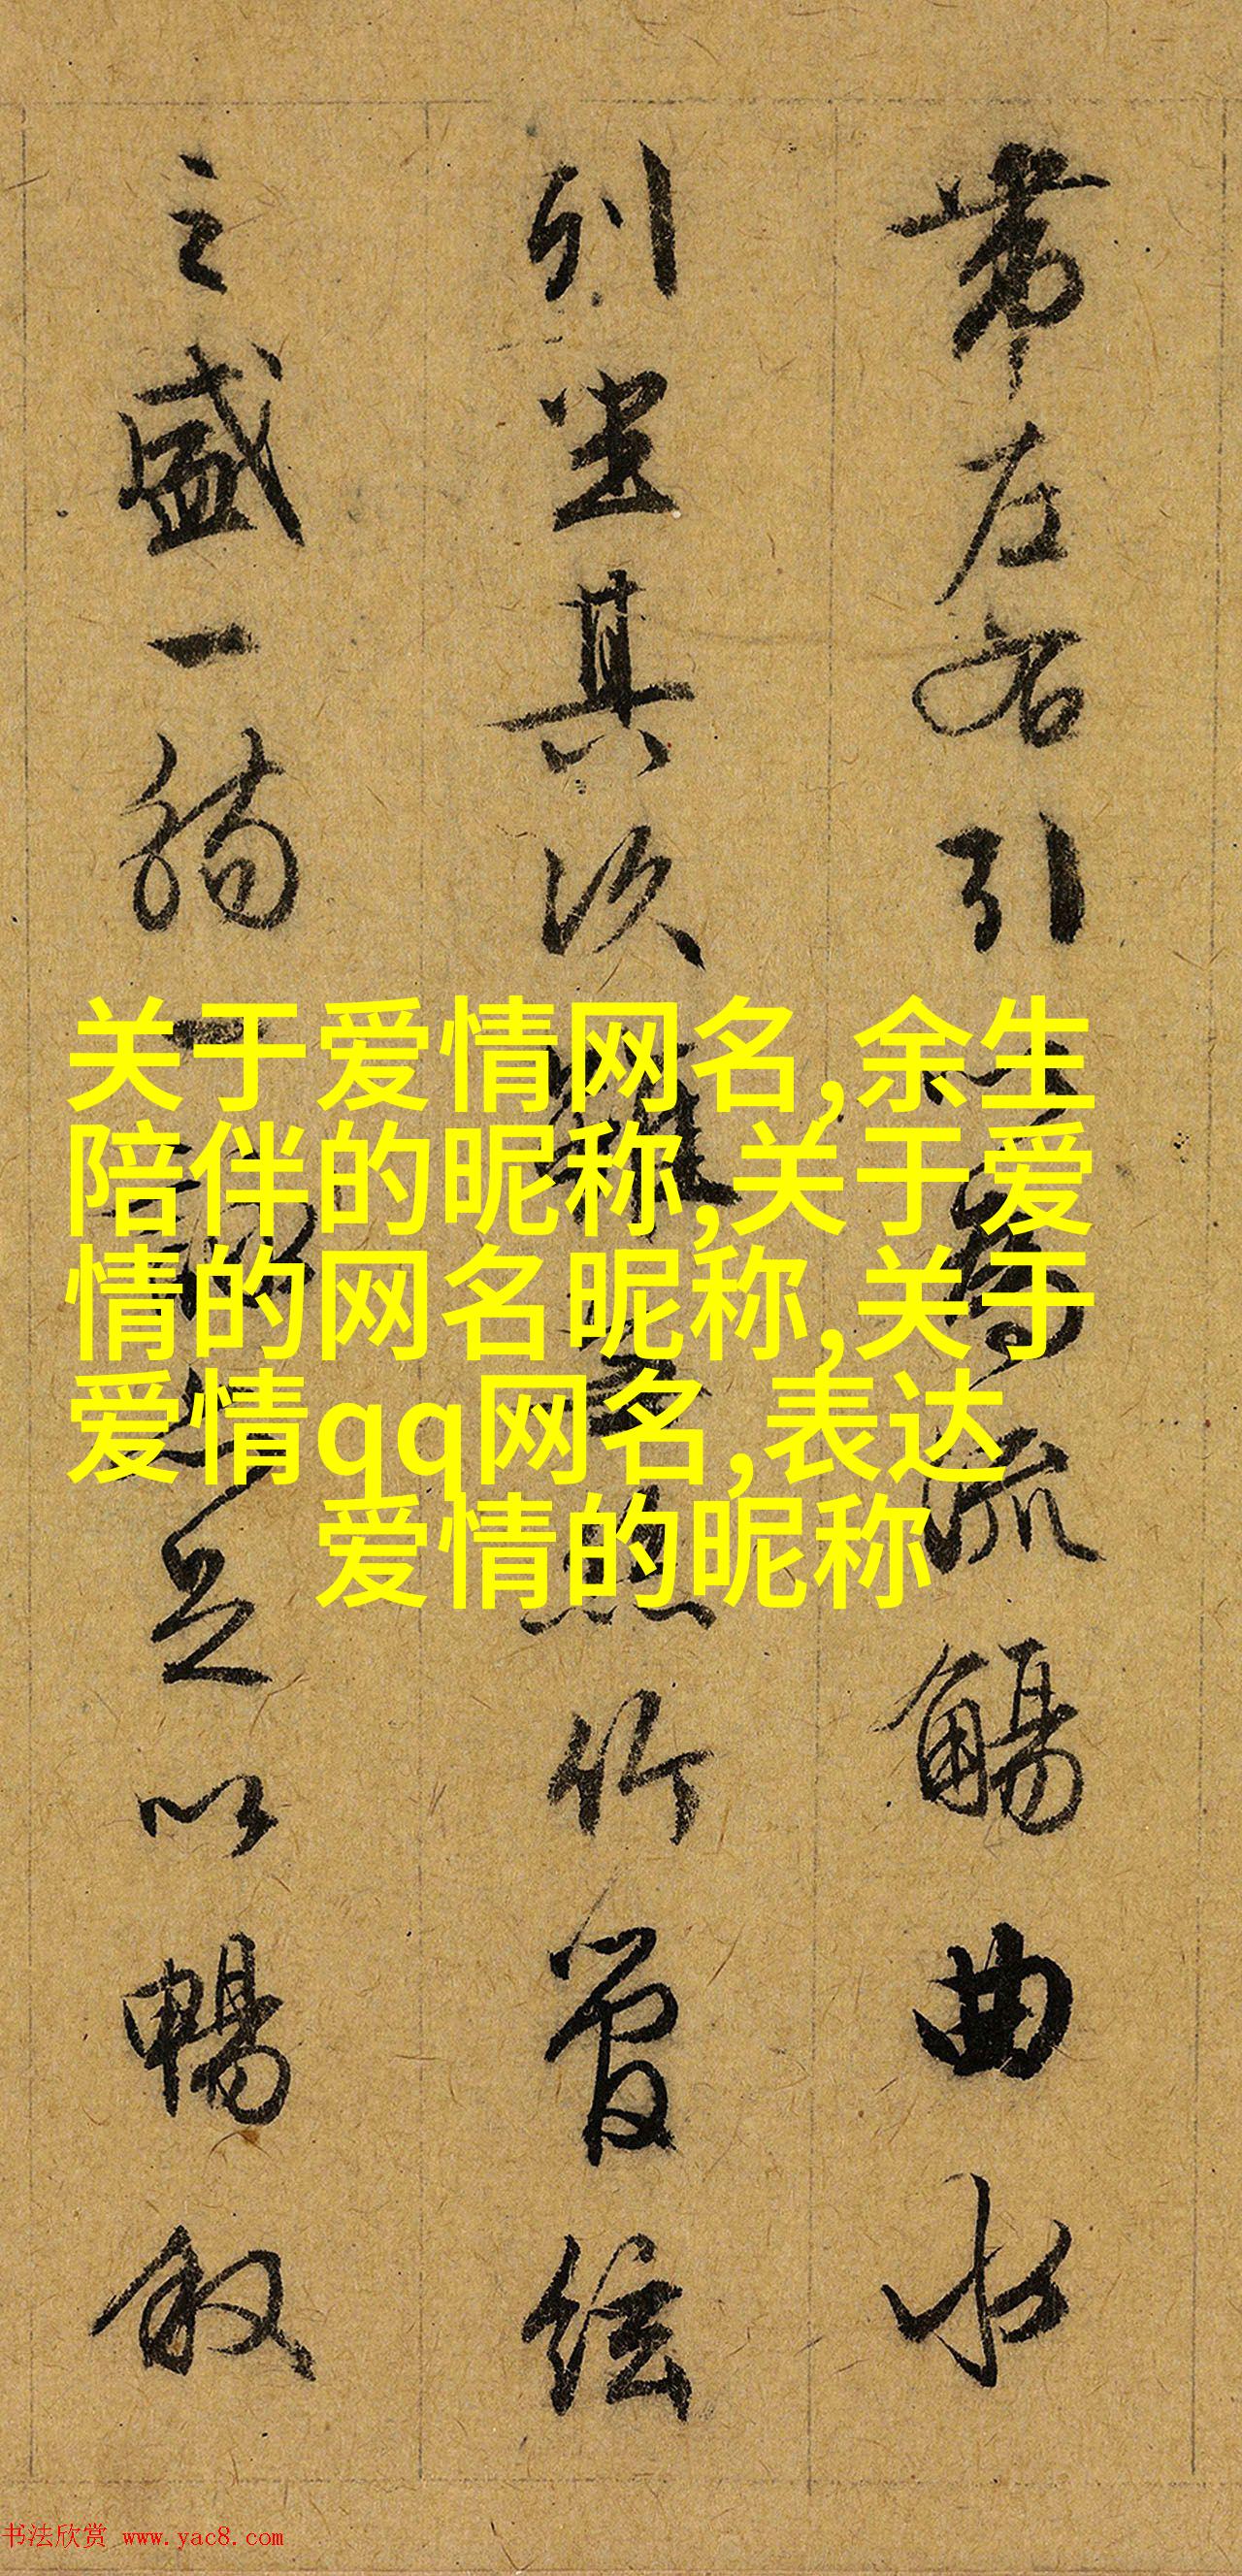 帶左右引以為流觴曲水
列坐其次雖無絲竹管絃
之盛一觴一詠亦足以暢敘
关于爱情网名,余生
陪伴的昵称,关于爱
情的网名昵称,关于
爱情qq网名,表达
爱情的昵称
书法欣赏 www.yac8.com